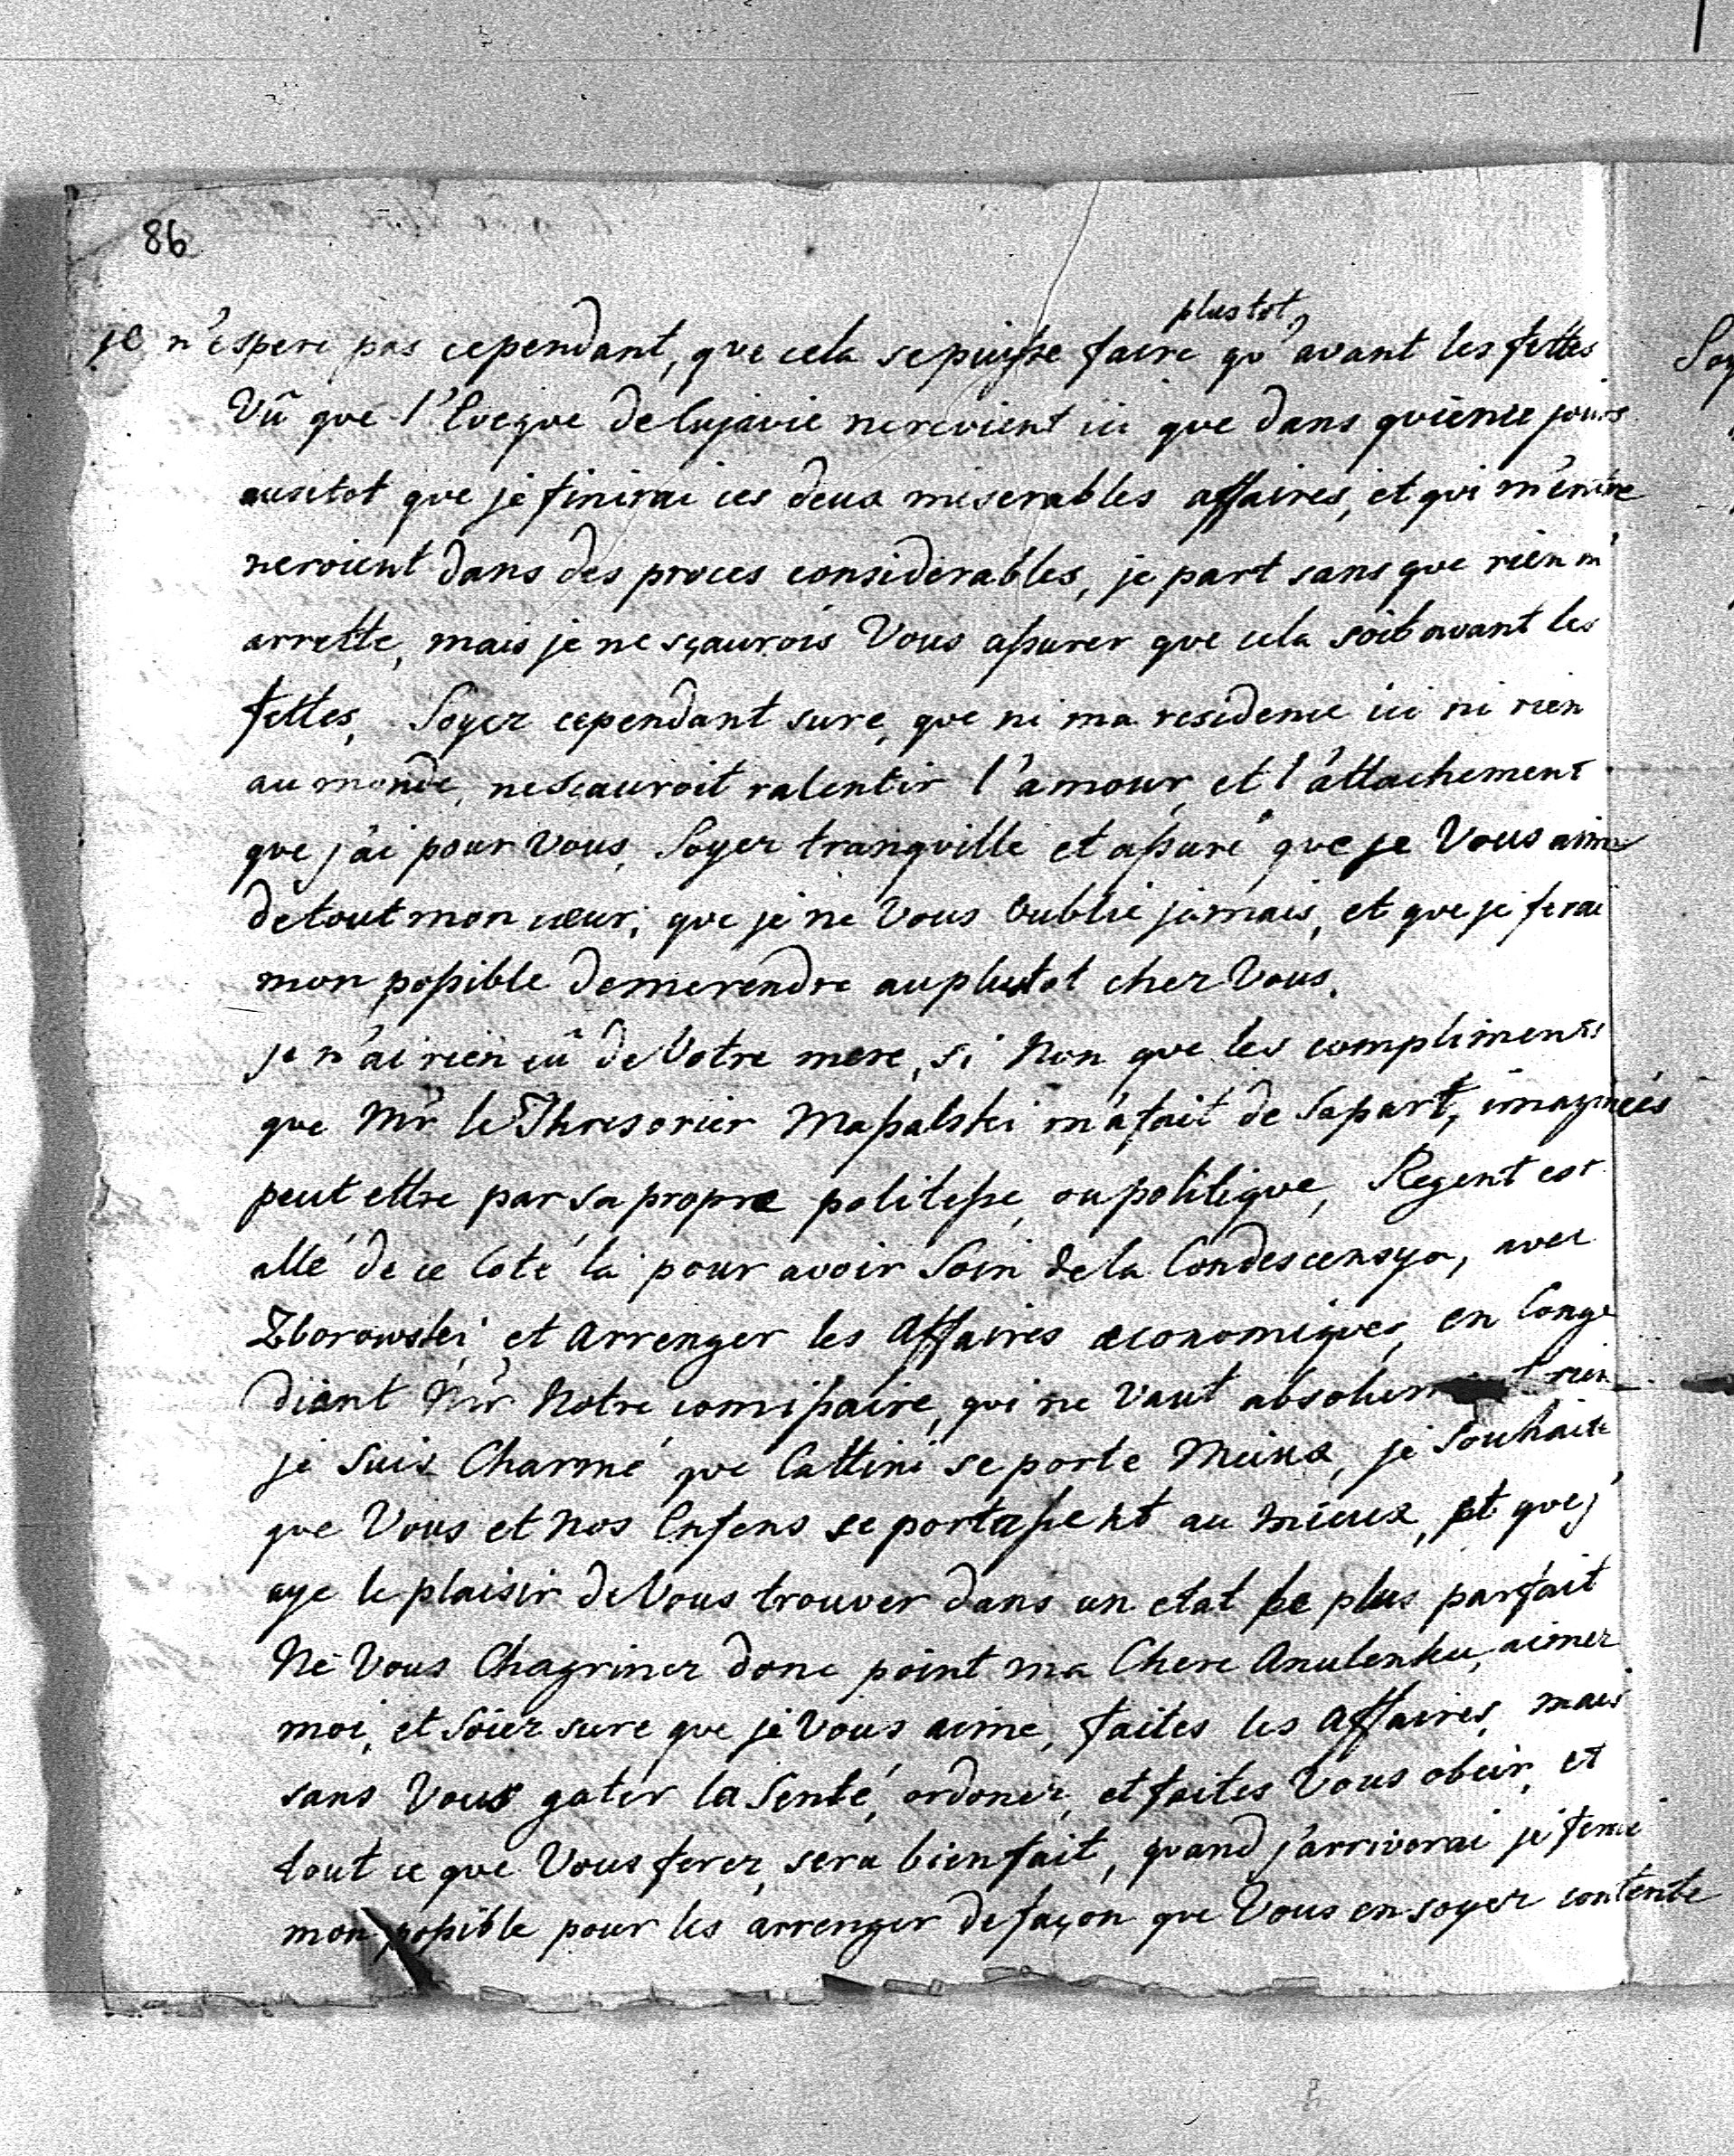 86
plustot,
je n'espere pas cependant, que cela se puisse faire qu'avant les fettes
Vû que l'Eveque de Cujavie ne revient ici que dans quience jours
ausitot que je finirai ces deux miserables affaires, et qui m'entre
neroient dans des proces considerables, je part sans que rien m'
arrette, mais je ne sçaurois Vous assurer que cela soit avant les
fettes, Soyez cependant sure, que ni ma residence ici ni rien
au monde, ne sçauroit ralentir l'amour, et l'attachement
que j'ai pour Vous, Soyez tranquille et assuré que je Vous aime
de tout mon cœur, que je ne Vous Oublie jamais, et que je ferai
mon possible de me rendre au plustot chez Vous.
je n'ai rien eû de Votre mere, si Non que les compliments
que Mr le Thresorier Massalski m'a fait de Sa part, imaginées
peut ettre par sa propre politesse, ou politique, Regent est
allé de ce Coté là pour avoir Soin de la Condescensya, avec
Zborowski et Arrenger les Affaires æconomiques, en Conge
diant Mr Notre comissaire, qui ne Vaut absolument rien
je Suis Charmé que Cattini se porte Mieux, je Souhaite
que Vous et Nos Enfens se portassent au Mieux, et que j'
aye le plaisir de Vous trouver dans un etat le plus parfait
Ne Vous Chagrinez donc point ma Chere Anulenku, aimez
moi, et Soiez sure que je Vous aime, faites les Affaires, mais
sans Vous gater la Senté, ordonez, et faites Vous obeir, et
tout ce que Vous ferez, sera bien fait, quand j'arriverai je ferai
mon possible pour les arrenger de façon que Vous en soyez contente